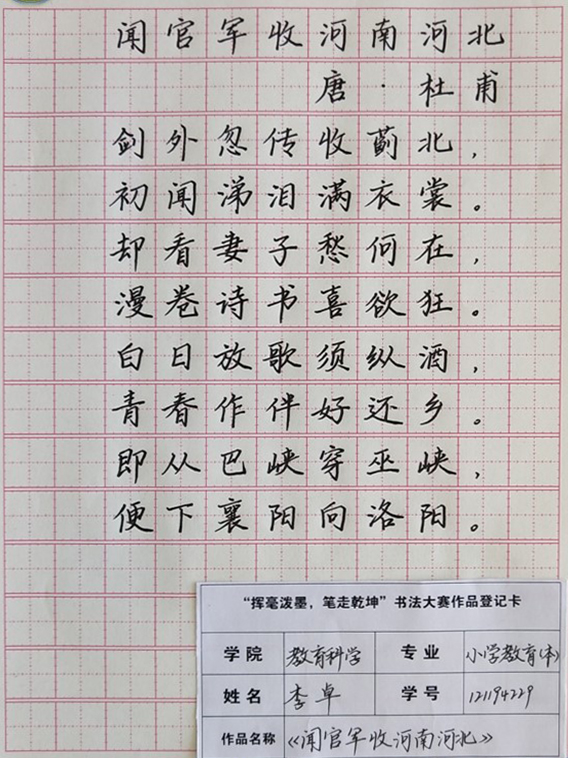 闻官军收河南河北
唐·杜甫
剑外忽传收蓟北，
初闻涕泪满衣裳。
却看妻子愁何在，
漫卷诗书喜欲狂。
白日放歌须纵酒，
青春作伴好还乡。
即从巴峡穿巫峡，
便下襄阳向洛阳。
“挥毫泼墨，笔走乾坤”书法大赛作品登记卡
学院 教育科学 专业 小学教育(本)
姓名 李卓 学号 121194229
作品名称 《闻官军收河南河北》